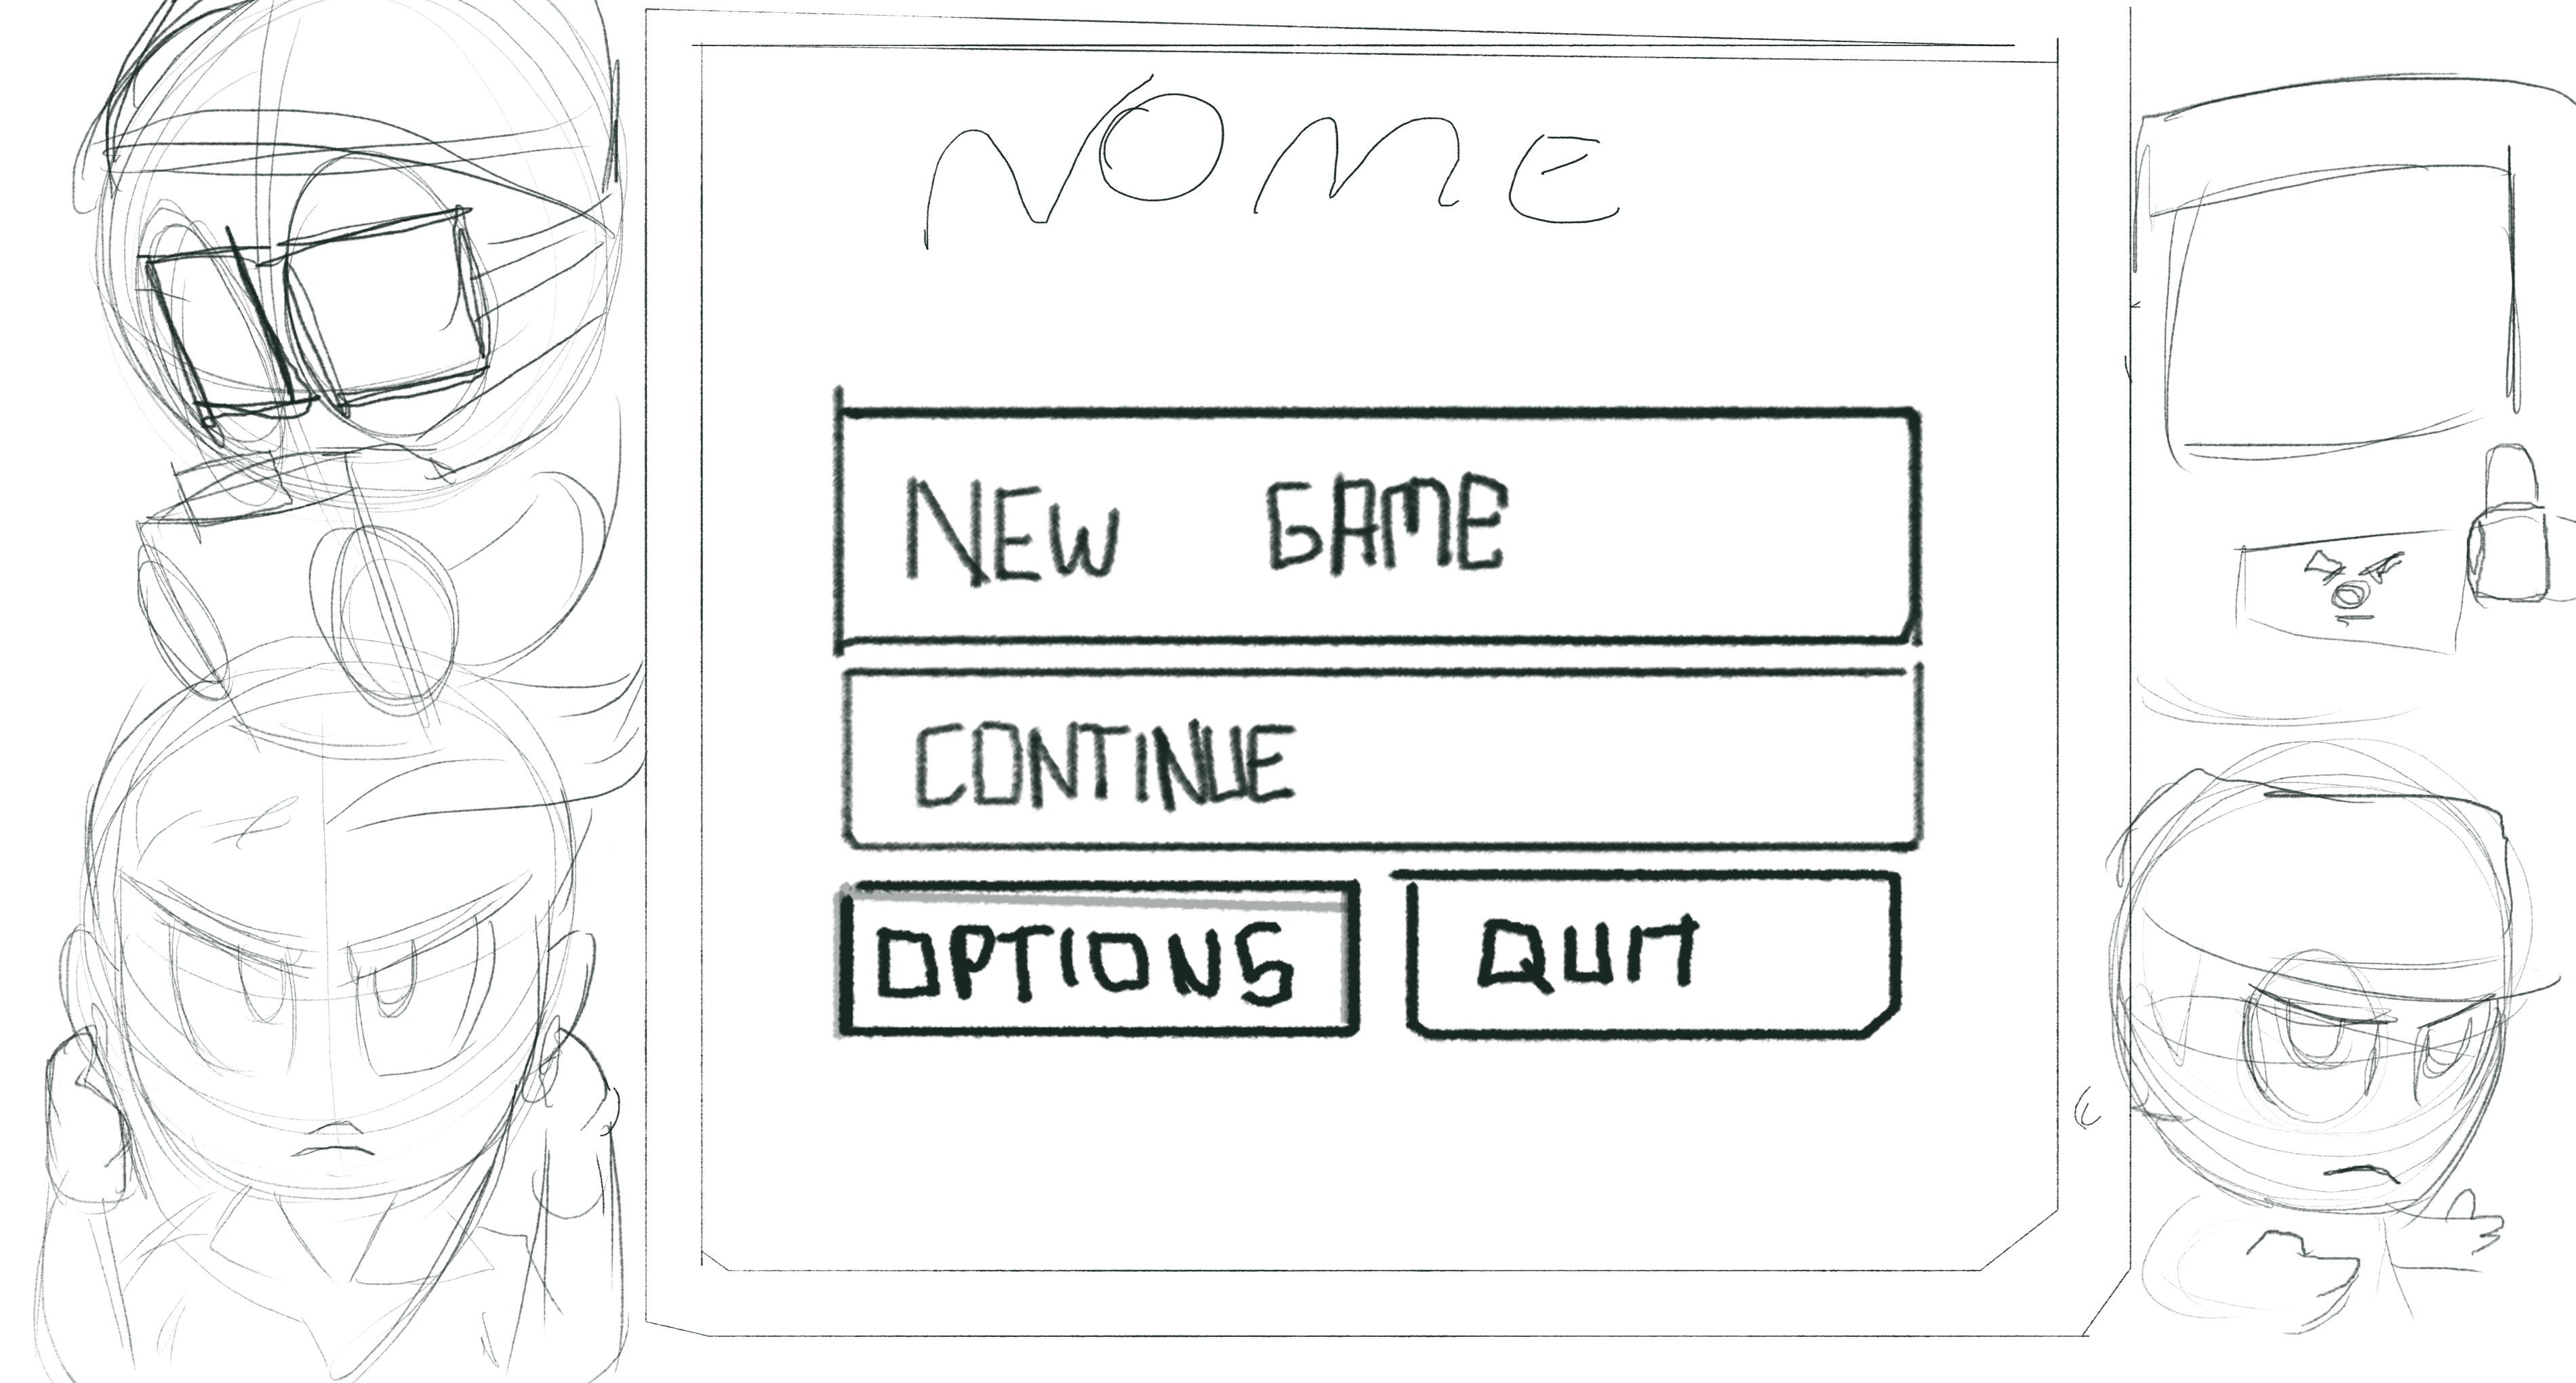 NOME
NEW GAME
CONTINUE
OPTIONS QUIT